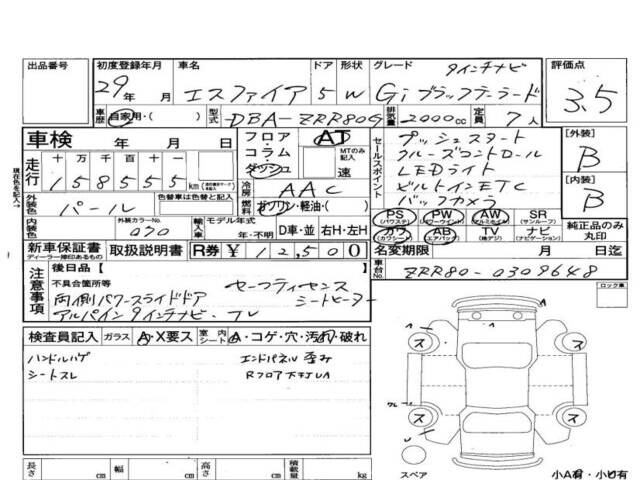 出品番号 初度登録年月 車名 ドア 形状 グレード 9インチナビ 評価点
29年 月 エスクァイア 5 W Gi ブラックテーラード 3.5
車歴 自家用・( ) 型式 DBA-ZRR80G 排気量 2000cc 定員 7人
車検 年 月 日
フロア・コラム・ダッシュ AT MTのみ記入 速
セールスポイント
プッシュスタート
クルーズコントロール
LEDライト
ビルトインETC
バックカメラ
[外装] B
[内装] B
現在色を記入→
走行 十万千百十一
158555 km
冷房 AAC
燃料 ガソリン・軽油・( )
外装色 パール 色替車は色替前色 色替車は色替えに○
内装色 外装カラーNo. 070
輸入車 モデル年式 年・不明 D車・並 右H・左H
PS (パワステ) PW (パワーウインド) AW (アルミホイル) SR (サンルーフ)
カワ (カワシート) AB (エアバッグ) TV (地デジ) ナビ (ナビゲーション)
純正品のみ丸印
新車保証書 ディーラー捺印あるもの 取扱説明書 R券 ¥12,500
名変期限 月 日迄
車台No. ZRR80-0309648
注意事項
後日品【 】
不具合箇所等 セーフティセンス
両側パワースライドドア シートヒーター
アルパイン9インチナビ・TV
ロック車
検査員記入 ガラス A・X要ス 室内シート A・コゲ・穴・汚れ・破れ
ハンドルハゲ エンドパネル歪み
シートスレ Rフロア下キズUA
A
ス ス
ス ス
スペア 小A有・小U有
長さ cm 幅 cm 高さ cm 積載量 kg